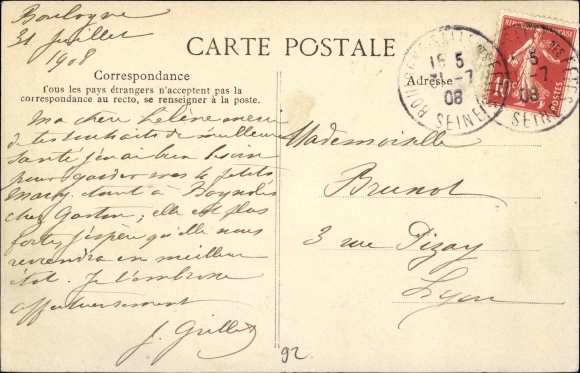 Boulogne
31 Juillet
1908
CARTE POSTALE
Correspondance
Tous les pays étrangers n'acceptent pas la
correspondance au recto, se renseigner à la poste.
Adresse
RÉPUBLIQUE FRANÇAISE
POSTES
10c
15 5
31 -7
08
SEINE
Ma chère Hélène merci
de tes souhaits de meilleure
santé j'en ai bien besoin
pour garder mes petits
à
chez Gaston, elle est plus
forte, j'espère qu'elle nous
reviendra en meilleur
état. Je t'embrasse
affectueusement
J. Grillet
Mademoiselle
Brunot
3 rue Pizay
Lyon
92